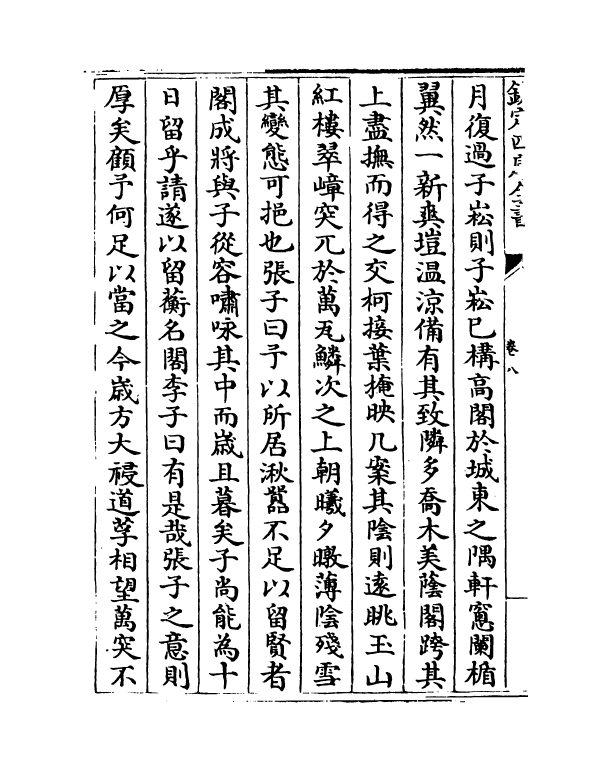 欽定四庫全書
卷八
月復過子崧則子崧已構高閣於城東之隅軒窻闌楯
翼然一新爽塏温涼備有其致隣多喬木美蔭閣跨其
上盡撫而得之交柯接葉掩映几案其陰則遠眺玉山
紅樓翠嶂突兀於萬瓦鱗次之上朝曦夕暾薄陰殘雪
其變態可挹也張子曰予以所居湫嚣不足以留賢者
閣成將與子從容嘯咏其中而嵗且暮矣子尚能為十
日留乎請遂以留蘅名閣李子曰有是哉張子之意則
厚矣顧予何足以當之今嵗方大祲道莩相望萬突不